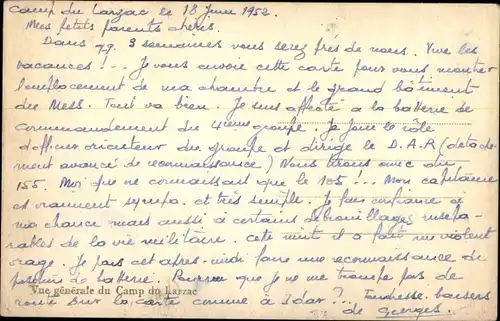 Camp du Larzac le 18 Juin 1952.
Mes petits parents chéris.
Dans qq. 3 semaines vous serez près de nous. Vive les
vacances !... Je vous envoie cette carte pour vous montrer
l'emplacement de ma chambre et le grand bâtiment
du Mess. Tout va bien. Je suis affecté à la batterie de
commandement du 4ème groupe. Je joue le rôle
d'officier orienteur du groupe et dirige le D.A.R (détache
ment avancé de reconnaissance) Nous tirons avec du
155. Moi qui ne connaissait que le 105 !... Mon capitaine
est vraiment sympa. et très simple. Je fais confiance à
ma chance mais aussi à certains débrouillages insépa-
rables de la vie militaire. Cette nuit il a fait un violent
orage. Je pars cet après-midi faire une reconnaissance de
position de batterie. Pourvu que je ne me trompe pas de
route sur la carte comme à Idar ?... Tendresse. baisers
Vue générale du Camp du Larzac
de Georges.